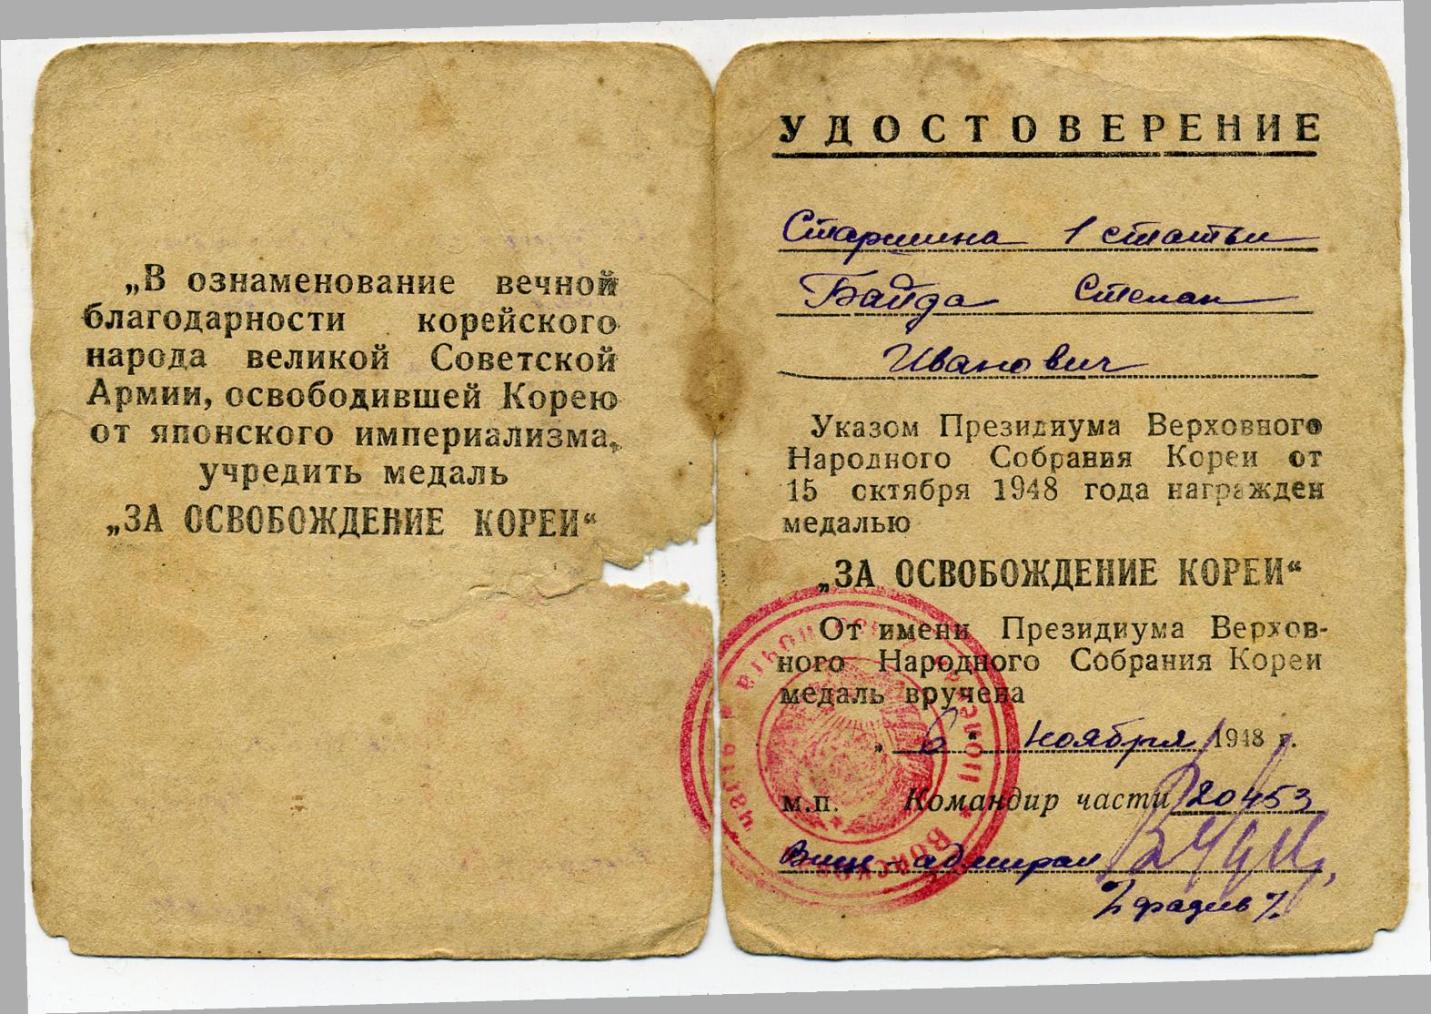 „В ознаменование вечной
благодарности корейского
народа великой Советской
Армии, освободившей Корею
от японского империализма,
учредить медаль
„ЗА ОСВОБОЖДЕНИЕ КОРЕИ“
УДОСТОВЕРЕНИЕ
Старшина 1 статьи
Байда Степан
Иванович
Указом Президиума Верховного
Народного Собрания Кореи от
15 октября 1948 года награжден
медалью
„ЗА ОСВОБОЖДЕНИЕ КОРЕИ“
От имени Президиума Верхов-
ного Народного Собрания Кореи
медаль вручена
„ 6 “ ноября 1948 г.
м.п. Командир части 20453
Вице-адмирал
/Фадеев/